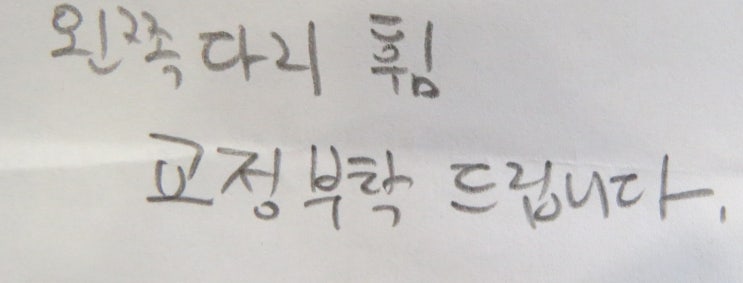 왼쪽다리 휨
교정부탁 드립니다.